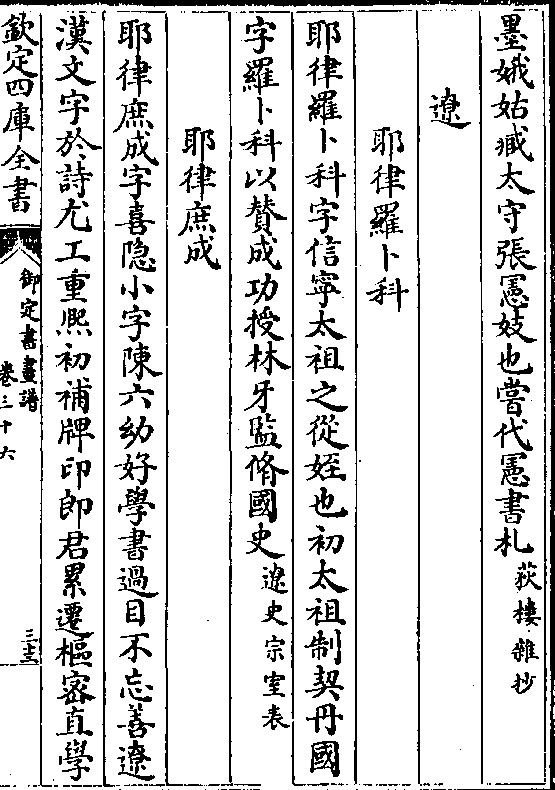 墨娥姑臧太守張憲妓也嘗代憲書札荻樓雜抄
遼
耶律羅卜科
耶律羅卜科字信寧太祖之從姪也初太祖制契丹國
字羅卜科以贊成功授林牙監脩國史遼史宗室表
耶律庶成
耶律庶成字喜隐小字陳六幼好學書過目不忘善遼
漢文字於詩尤工重熙初補牌印郎君累遷樞密直學
欽定四庫全書
御定書畫譜
卷三十六